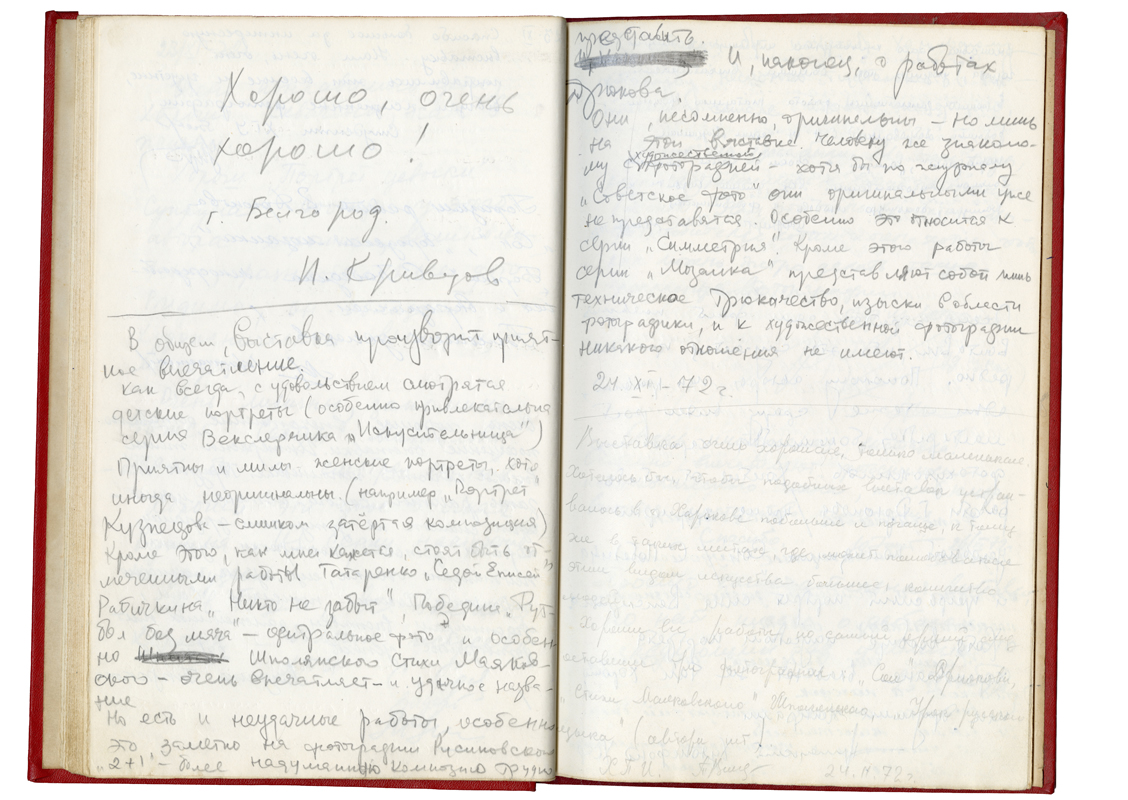 Хорошо, очень
хорошо!
г. Белгород.
И. Кривцов
В общем, выставка производит прият-
ное впечатление.
как всегда, с удовольствием смотрятся
детские портреты (особенно привлекательна
серия Векслерчика „Искусительница")
Приятны и милы женские портреты, хотя
иногда неоригинальны. (например „Портрет"
Кузнецова – слишком затёртая композиция)
Кроме этого, как мне кажется, стоят быть от-
меченными работы Татаренко „Седой Енисей"
Рабичкина „Никто не забыт", Победина „Фут-
бол без мяча" – оригинальное фото и особен
но Шполянского Стихи Маяков-
ского – очень впечатляет – и удачное назва-
ние
Но есть и неудачные работы, особенно
это заметно на фотографии Русиновского
„2+1" – более надуманную композицию трудно
представить.
И, наконец, о работах
Трюкова.
Они, несомненно, оригинальны – но лишь
на этой выставке. Человеку же знакомо-
му с художественной фотографией – хотя бы по журналу
„Советское фото" они оригинальными уже
не представятся. Особенно это относится к
серии „Симметрия". Кроме этого работы
серии „Мозаика" представляют собой лишь
техническое трюкачество, изыски в области
фотографики, и к художественной фотографии
никакого отношения не имеют.
24. XI – 72 г.
Выставка очень хорошая, только маленькая.
Хотелось бы, чтобы подобные выставки устраи-
вались в Харькове побольше и почаще, к тому
же в таких местах, где может познакомиться
этим видом искусства большее количество
Хороши все работы, но
„Стихи Маяковского" Шполянского
(автора нет)
ХПИ 24.11.72 г.